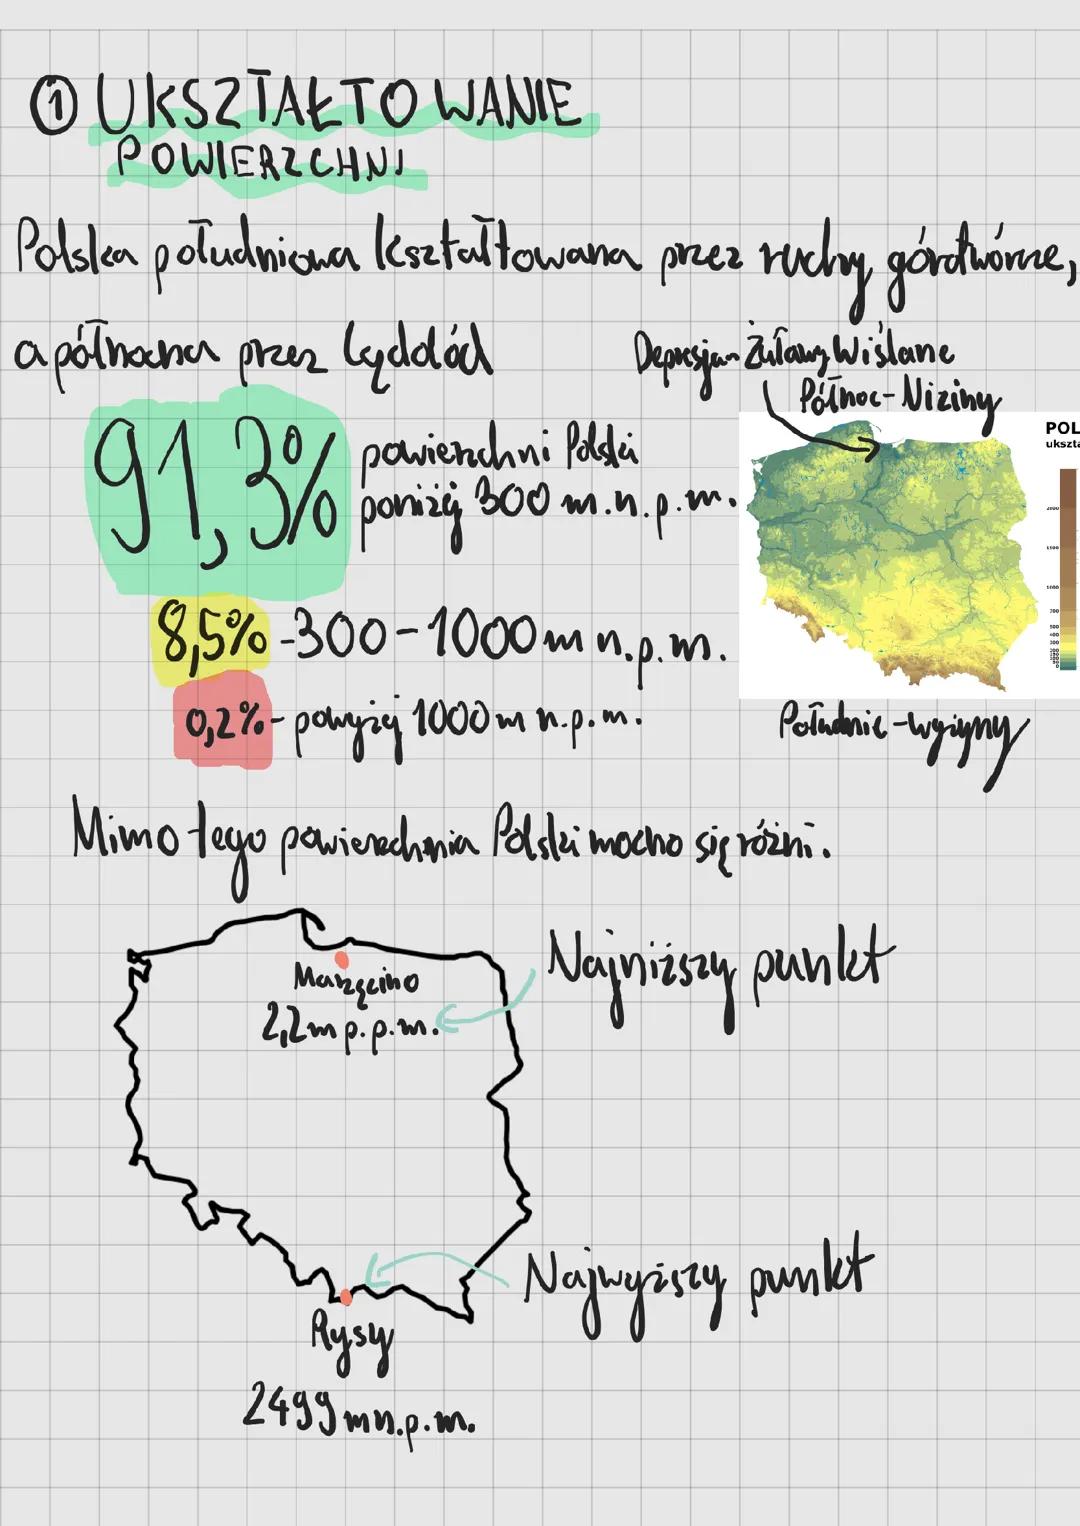 ① UKSZTAŁTOWANIE
POWIERZCHNI
Polska południowa kształtowana przez ruchy górotwórcze,
a północna przez lądolód
Depresja - Żuławy Wiślane
Północ - Niziny
91,3% powierzchni Polski
poniżej 300 m.n.p.m.
POL
ukszta
2000
1500
1000
700
500
400
300
8,5% - 300 - 1000 m n.p.m.
0,2% - powyżej 1000 m n.p.m.
Południe - wyżyny
Mimo tego powierzchnia Polski mocno się różni.
Najniższy punkt
Marzęcino
2,2 m p.p.m.
Najwyższy punkt
Rysy
2499 m n.p.m.